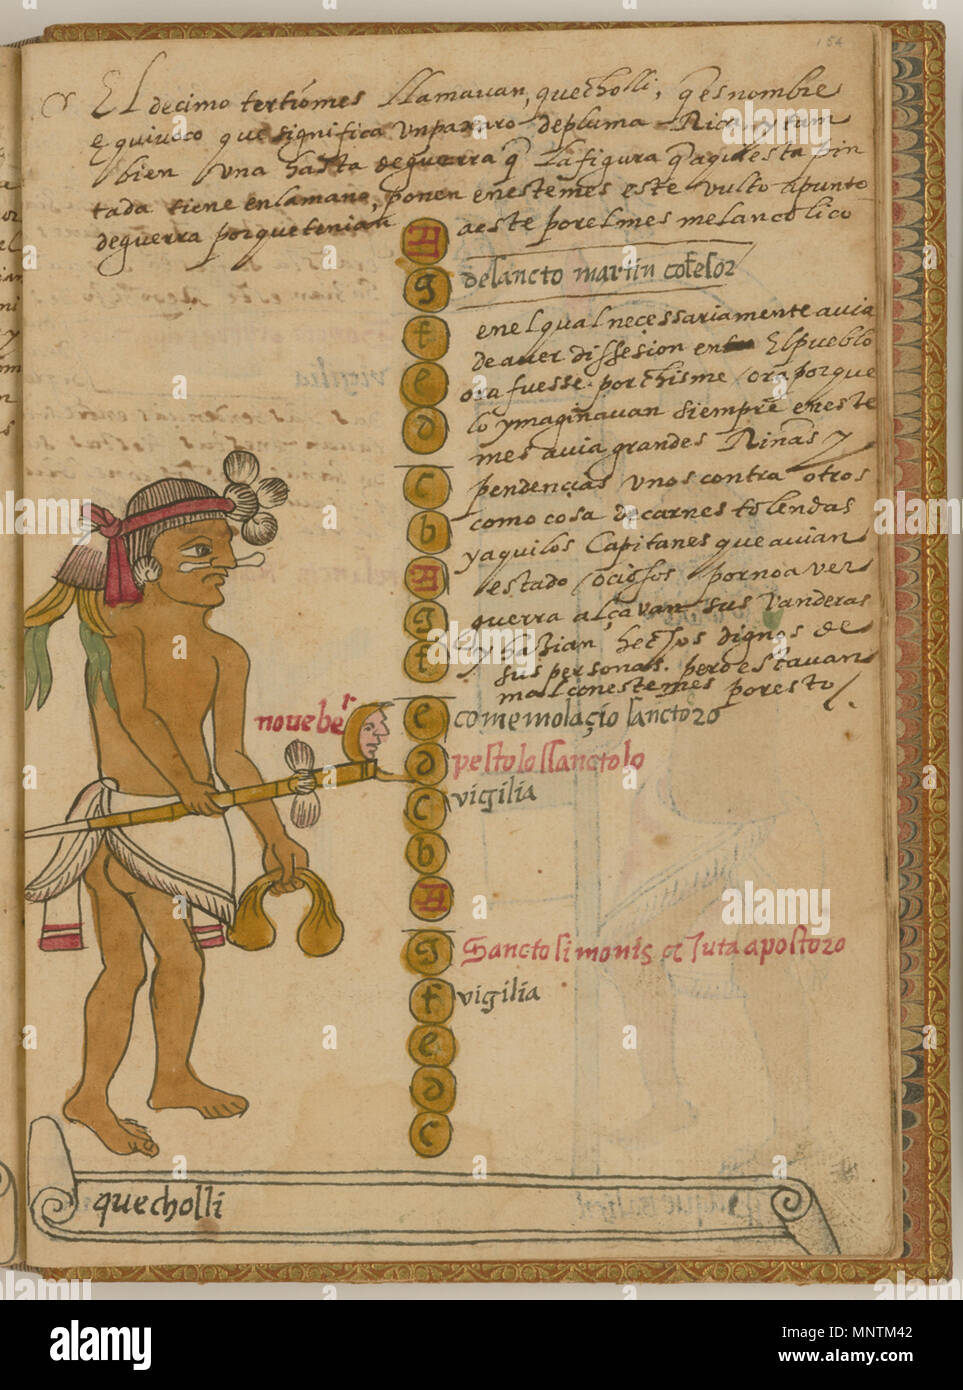 154
El decimo tertiómes llamavan, quecholli, q̃ es nombre
equivoco que significa un paxaro de pluma Rica, y tam
bien una hasta de guerra q̃ la figura q̃ aqui esta pin
tada tiene en la mano, ponen en este mes este vulto apunto
de guerra porque tenian
a este por el mes melancolico
A
g
f
e
d
c
b
A
g
f
e
d
c
b
A
g
f
e
d
c
de sancto martin cõfesor
en el qual necessariamente avia
de aver dissesion en El pueblo
ora fuesse por chisme / ora porque
lo ymaginavan siempre en este
mes avia grandes Rinas y
pendencias unos contra otros
como cosa de carnes tolendas
y aquilos Capitanes que avian
estado ociosos por no aver
guerra alçavan sus vanderas
y hazian hechos dignos de
sus personas. pero estavan
mal con este mes por esto /.
nouebeʳ
comemolaçio sanctozo
pestolo ssanctolo
vigilia
Sancto simonis et Juta apostozo
vigilia
quecholli
alamy
Image ID: MNTM42
www.alamy.com